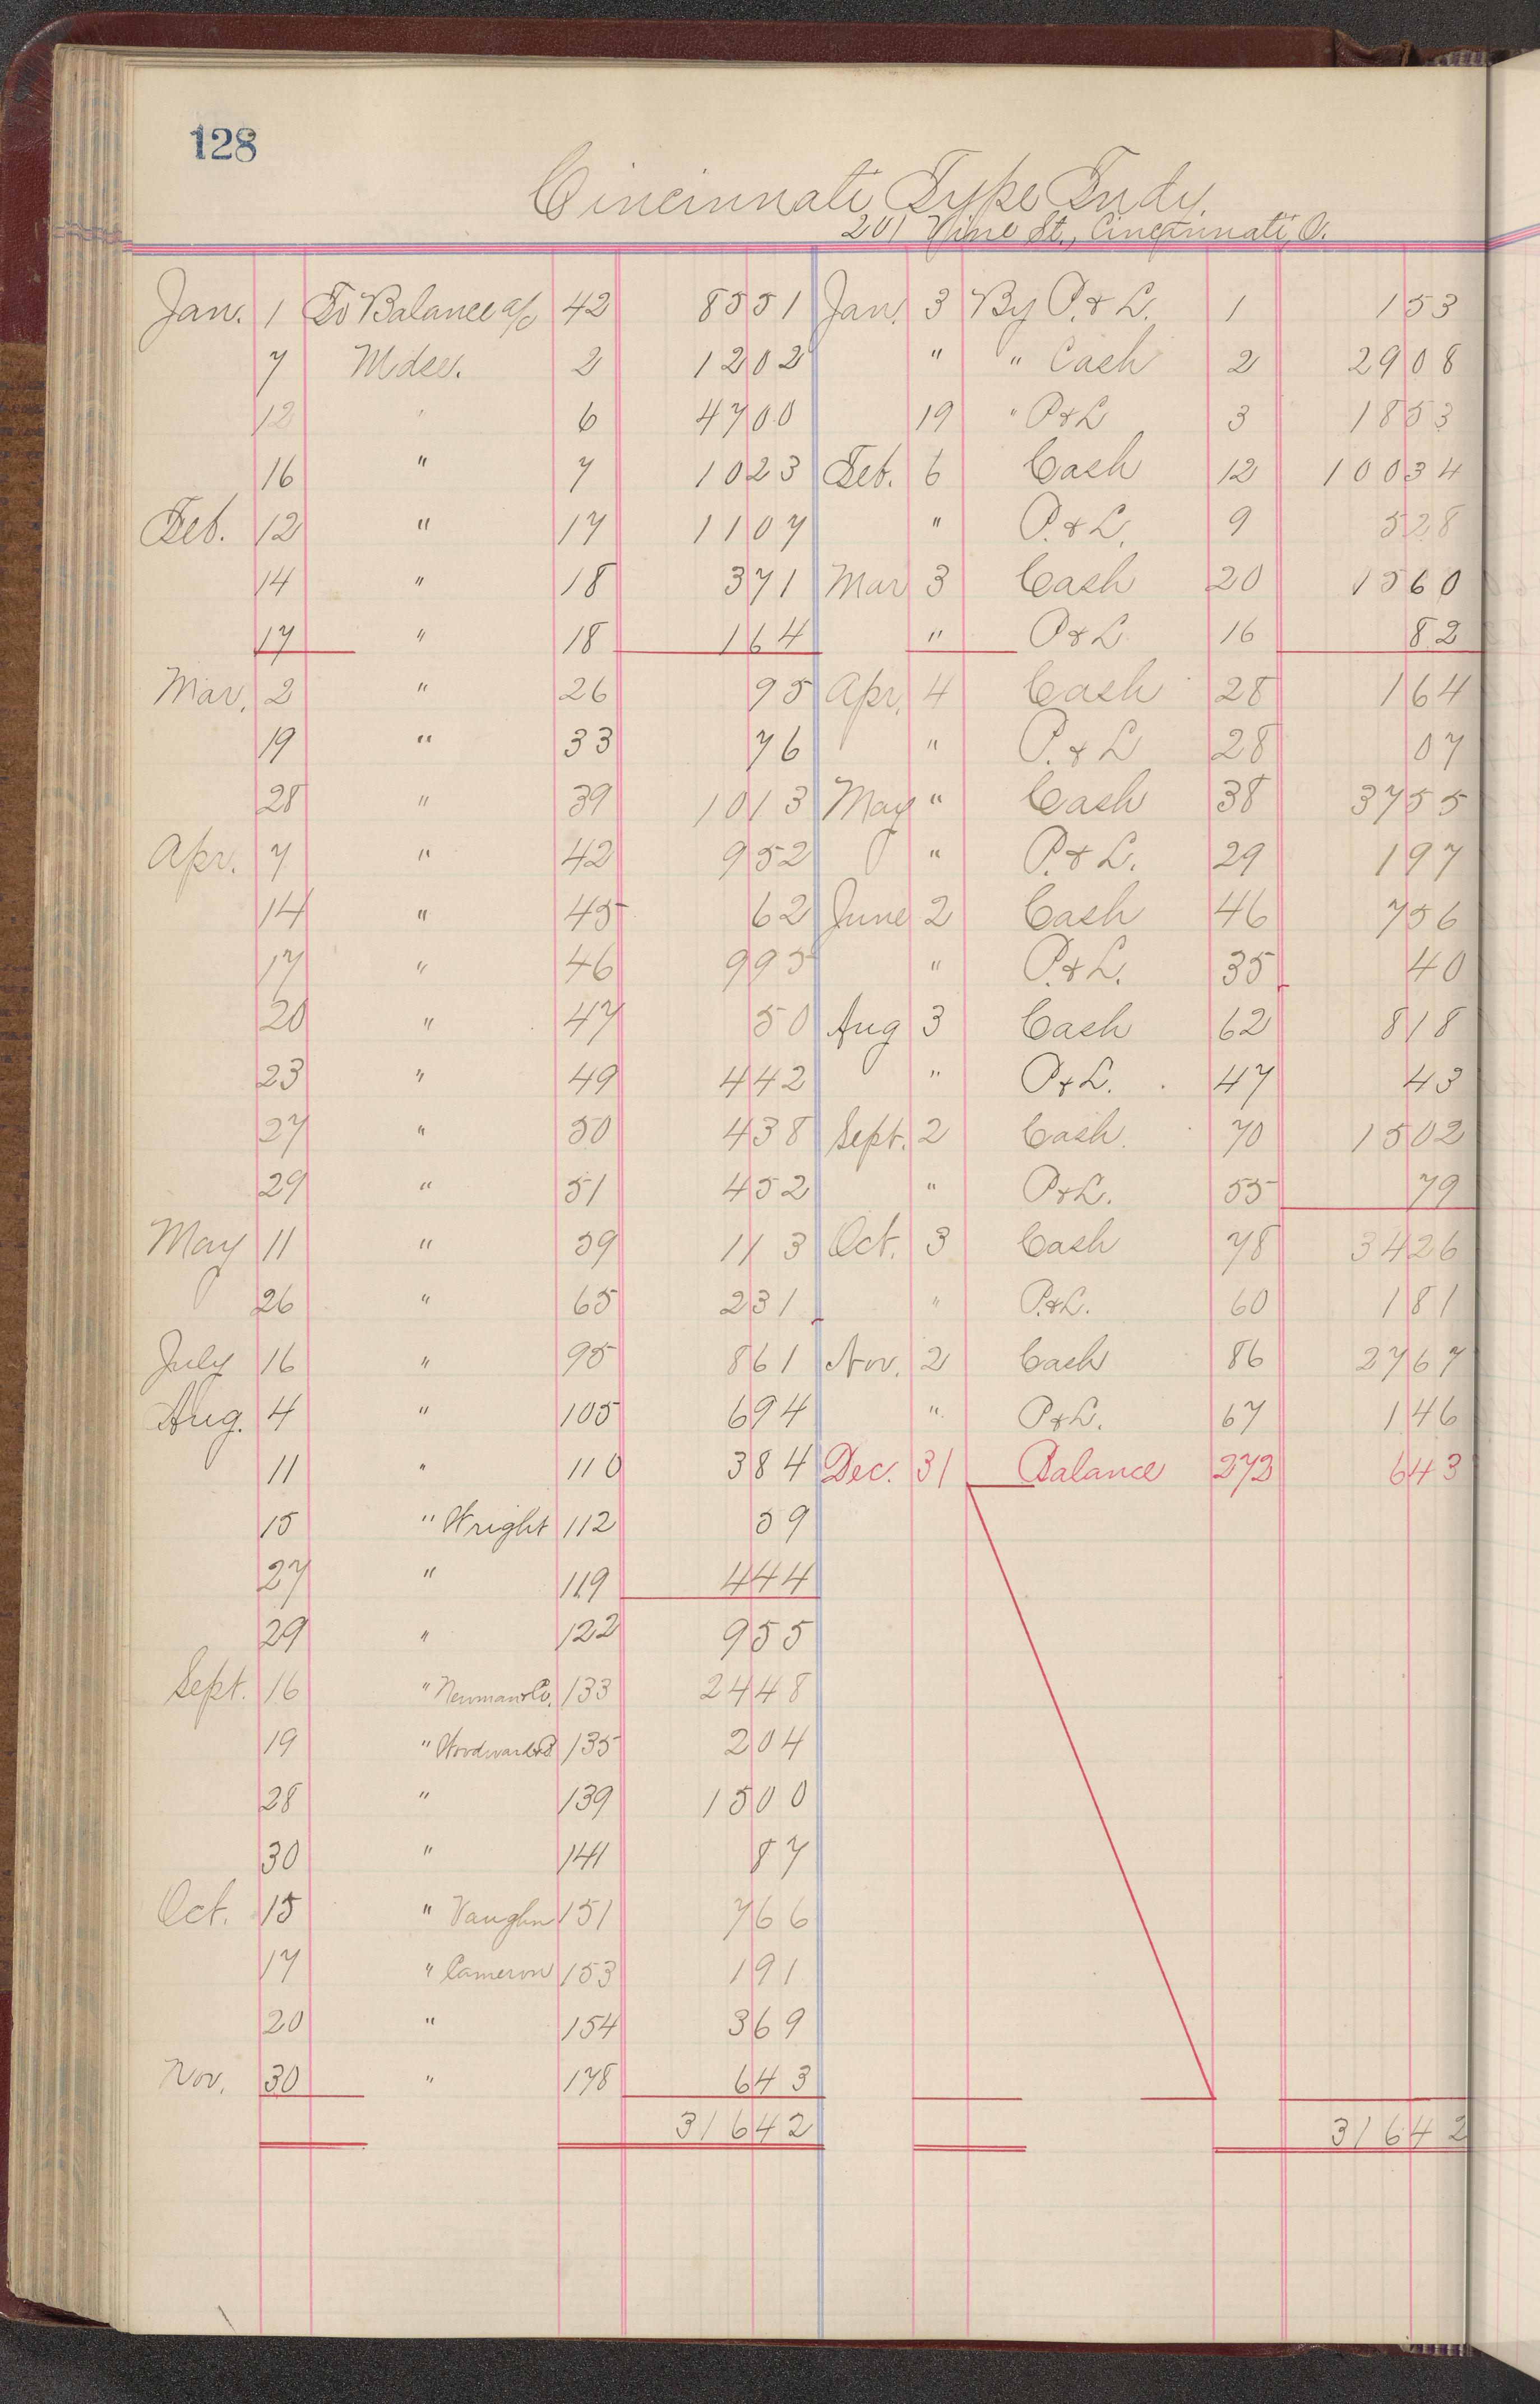 128
Cincinnati Type Fndy.
201 Vine St., Cincinnati, O.
Jan. 1 To Balance a/c 42 85 51 Jan. 3 By P. & L. 1 1 53
7 Mdse. 2 12 02 " " Cash 2 29 08
12 " 6 47 00 19 " P & L 3 18 53
16 " 7 10 23 Feb. 6 Cash 12 100 34
Feb. 12 " 17 11 07 " P. & L. 9 5 28
14 " 18 3 71 Mar 3 Cash 20 15 60
17 " 18 1 64 " P & L 16 82
Mar. 2 " 26 95 Apr. 4 Cash 28 1 64
19 " 33 76 " P. & L 28 07
28 " 39 10 13 May " Cash 38 37 55
Apr. 7 " 42 9 52 " P. & L. 29 1 97
14 " 45 62 June 2 Cash 46 7 56
17 " 46 9 95 " P. & L. 35 40
20 " 47 50 Aug 3 Cash 62 8 18
23 " 49 4 42 " P & L. 47 43
27 " 50 4 38 Sept. 2 Cash. 70 15 02
29 " 51 4 52 " P & L. 55 79
May 11 " 59 1 13 Oct. 3 Cash 78 34 26
26 " 65 2 31 " P. & L. 60 1 81
July 16 " 95 8 61 Nov. 2 Cash 86 27 67
Aug. 4 " 105 6 94 " P & L. 67 1 46
11 " 110 3 84 Dec. 31 Balance 273 6 43
15 " Wright 112 59
27 " 119 4 44
29 " 122 9 55
Sept. 16 " Newman & Co. 133 24 48
19 " Woodward & 135 2 04
28 " 139 15 00
30 " 141 87
Oct. 15 " Vaughn 151 7 66
17 " Cameron 153 1 91
20 " 154 3 69
Nov. 30 " 178 6 43
316 42 316 42